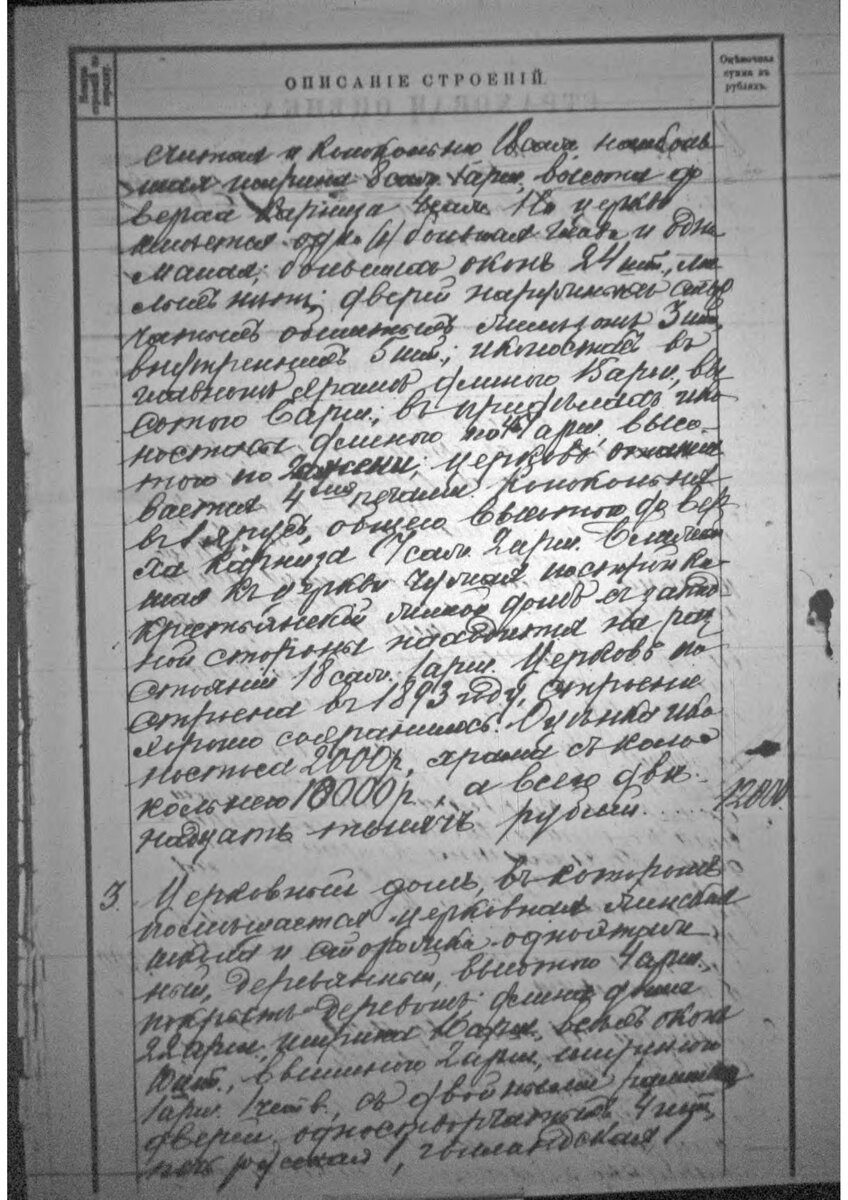 ОПИСАНІЕ СТРОЕНІЙ.
Оцѣночная
сумма въ
рубляхъ.
считая и колокольню 18 саж. наиболь
шая ширина 8 саж. 1 арш., высота до
верха карниза 4 саж. На церкви
имѣется одна (1) большая глава и одна
малая; большихъ оконъ 24 шт.,
дверей наружныхъ створ
чатыхъ обшитыхъ желѣзомъ 3 шт.,
внутреннихъ 5 шт.; иконостасъ въ
главномъ храмѣ длиною арш., вы
сотою 6 арш.; въ придѣлахъ ико
ностасы длиною по 4 арш. высо
тою по 2 сажени; церковь отапли
вается 4мя печами. Колокольня
въ 1 ярусъ, общею высотою до вер
ха карниза 7 саж. 2 арш. Ближай
шая къ церкви чужая постройка
крестьянскій жилой домъ съ запад
ной стороны находится на раз
стояніи 18 саж. 1 арш. Церковь по
строена въ 1893 году, строеніе
хорошо сохранилось. Оцѣнка ико
ностаса 2000 р., храма съ коло
кольнею 10000 р., а всего двѣ
надцать тысячъ рублей.
12000
3. Церковный домъ, въ которомъ
помѣщается церковная женская
школа и сторожка одноэтаж
ный, деревянный, высотою 4 арш.,
покрытъ деревомъ длина дома
22 арш., ширина арш., всѣхъ оконъ
10 шт., вышиною 2 арш., шириною
1 арш. 1 четв., съ двойными рамами
дверей одностворчатыхъ 4 шт.,
печь русская, голландская